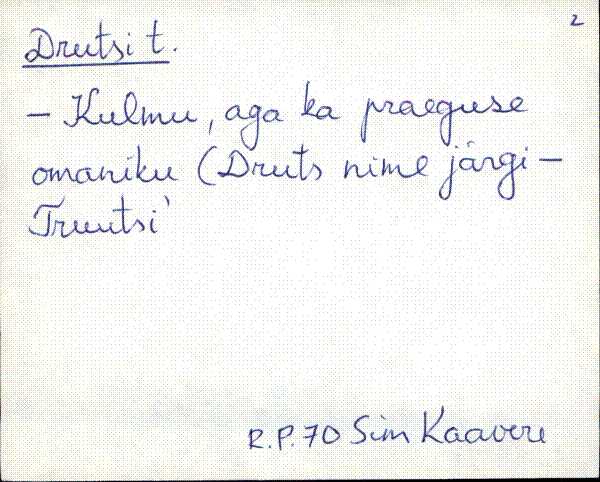 2
Drutsi t.
– Kulmu, aga ka praeguse
omaniku (Druts nime järgi –
Truutsi'
R.P. 70 Sim Kaavere